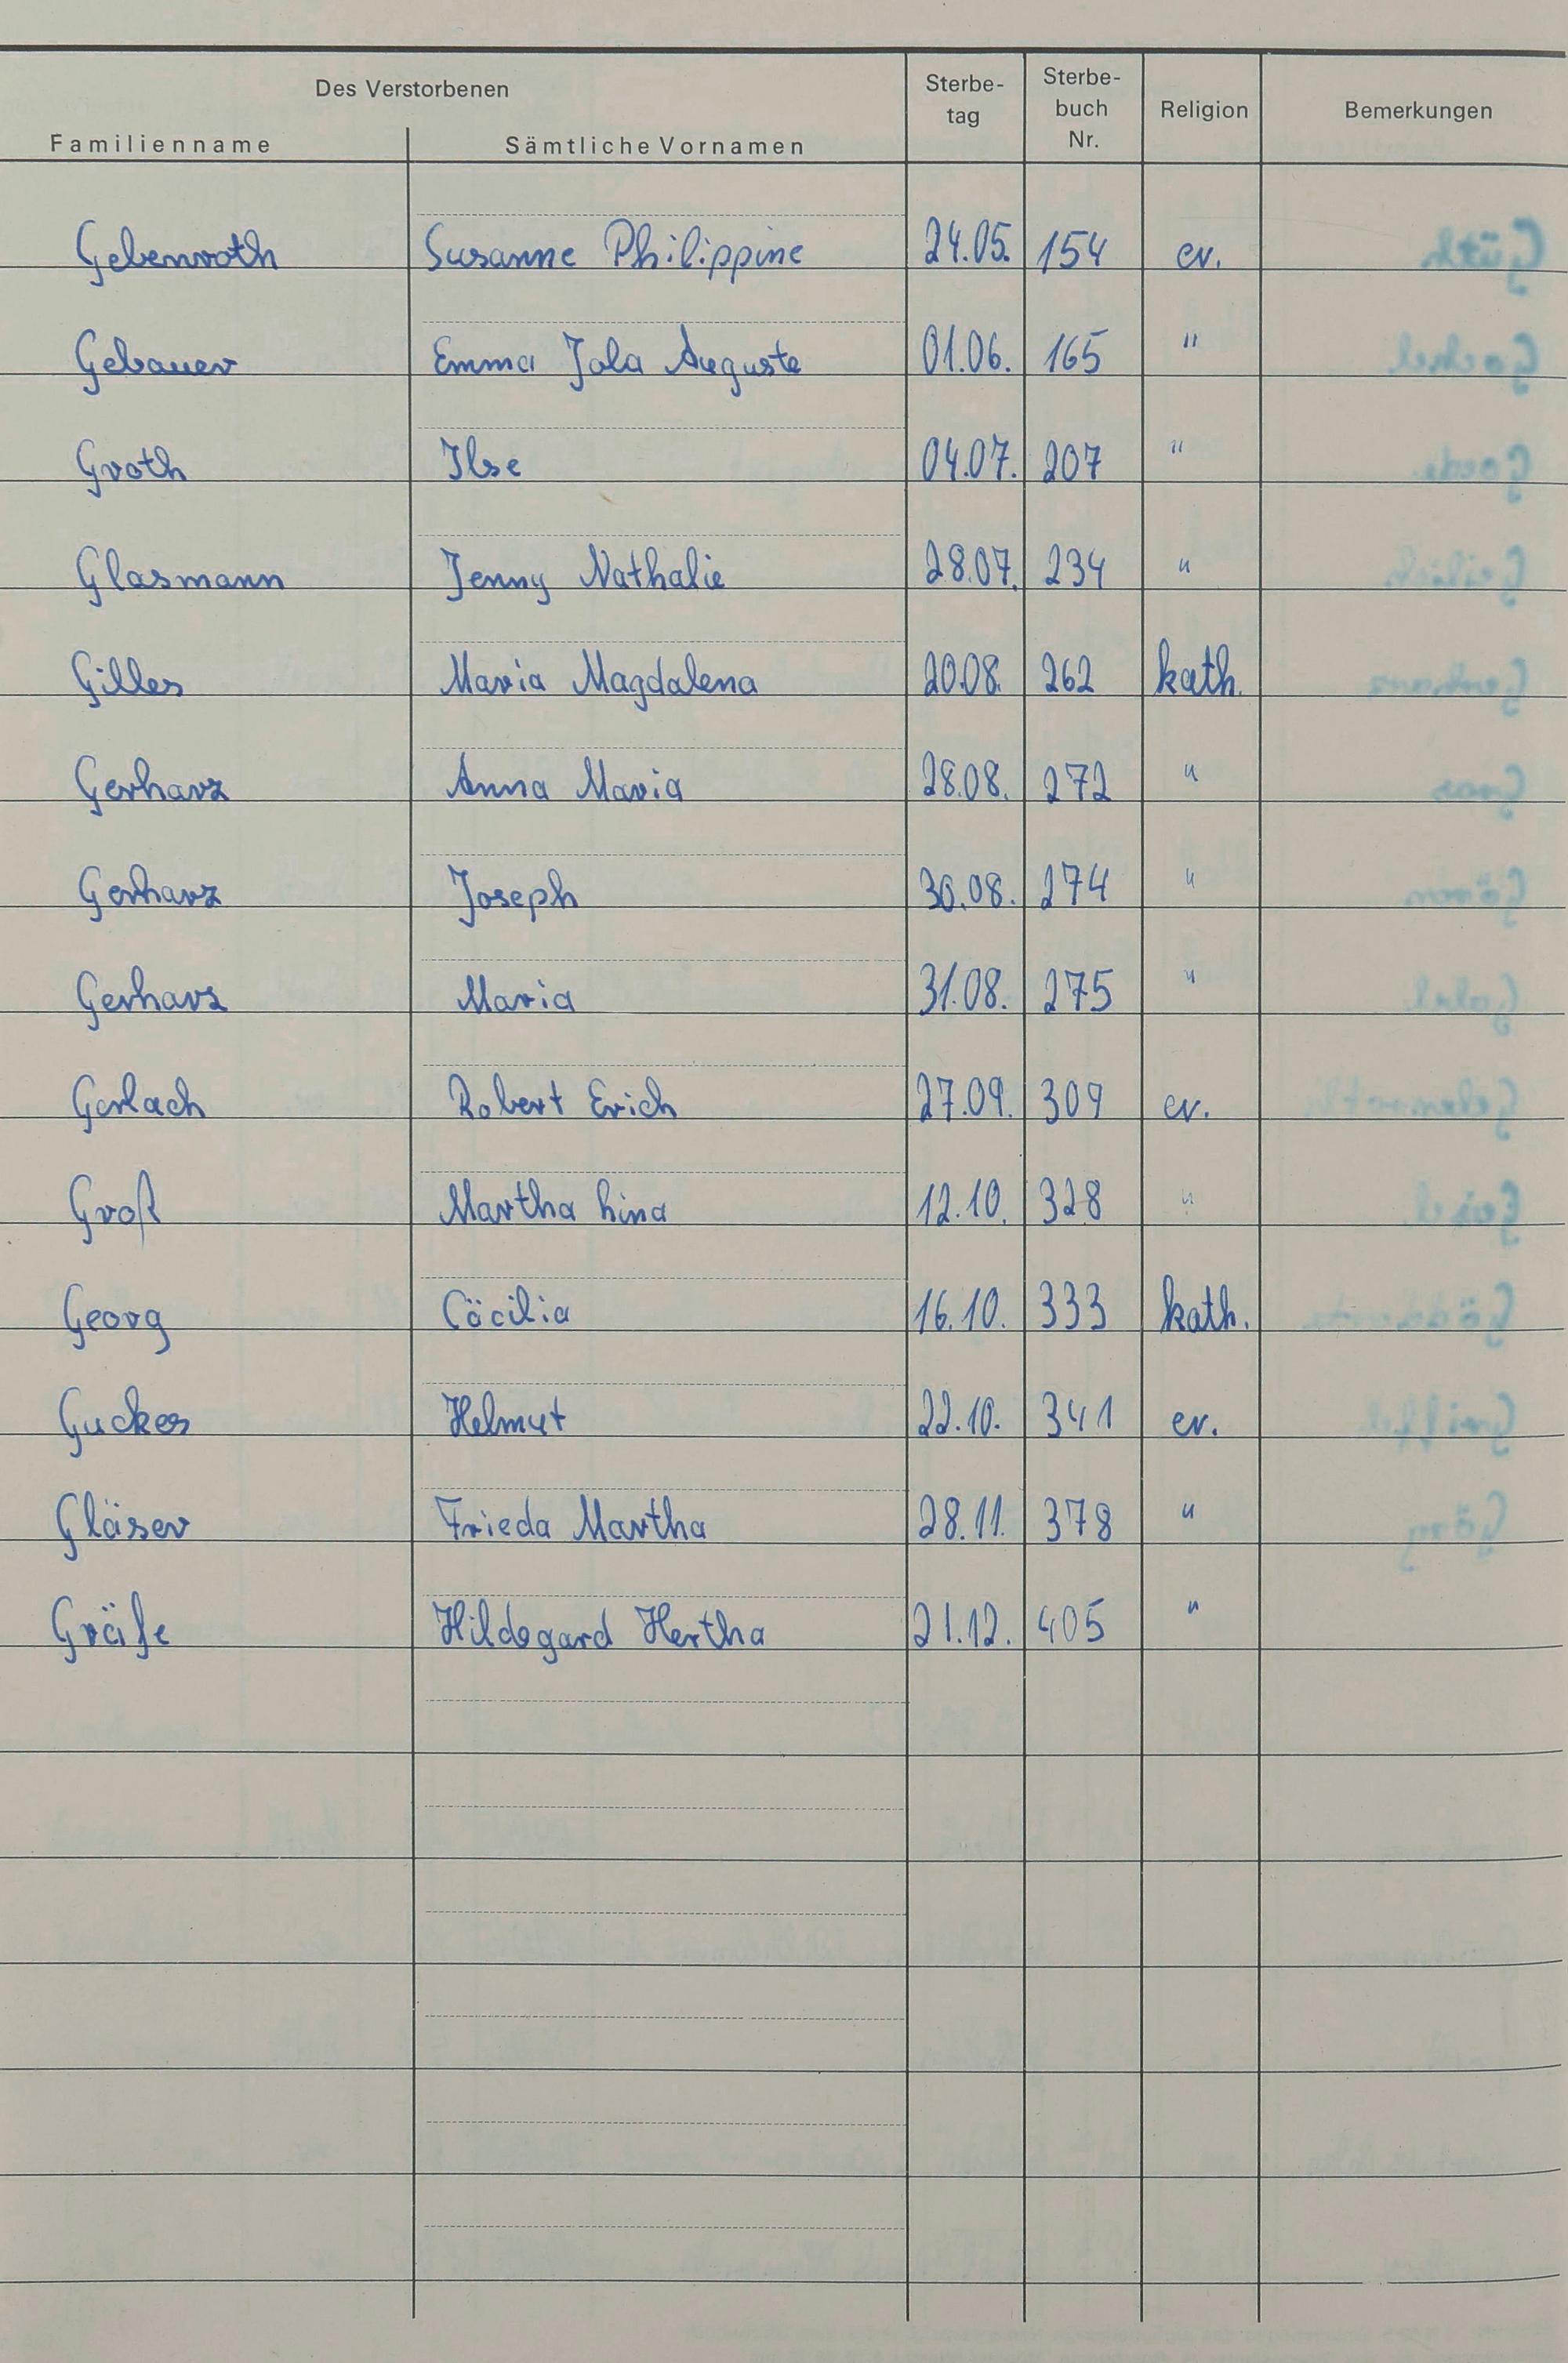 Des Verstorbenen
Familienname Sämtliche Vornamen Sterbe-tag Sterbe-buch Nr. Religion Bemerkungen
Gebenroth Susanne Philippine 24.05. 154 ev.
Gebauer Emma Jola Auguste 01.06. 165 "
Groth Ilse 04.07. 207 "
Glasmann Jenny Nathalie 28.07. 234 "
Gilles Maria Magdalena 20.08. 262 kath.
Gerharz Anna Maria 28.08. 272 "
Gerharz Joseph 30.08. 274 "
Gerharz Maria 31.08. 275 "
Gerlach Robert Erich 27.09. 309 ev.
Groß Martha Lina 12.10. 328 "
Georg Cäcilia 16.10. 333 kath.
Guckes Helmut 22.10. 341 ev.
Gläser Frieda Martha 28.11. 378 "
Gräfe Hildegard Hertha 21.12. 405 "